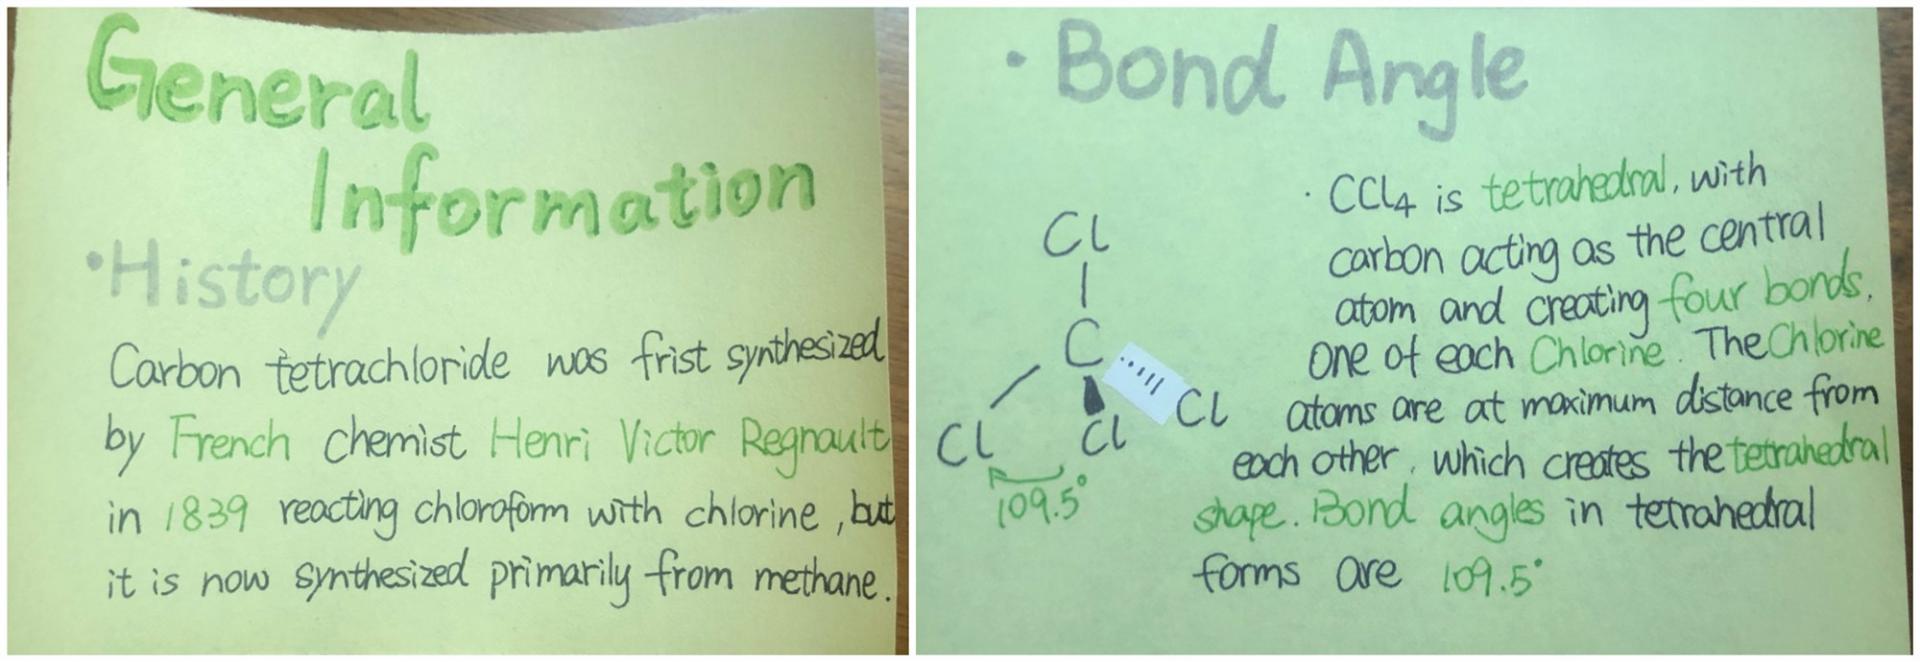 General
Information
•History
Carbon tetrachloride was frist synthesized
by French chemist Henri Victor Regnault
in 1839 reacting chloroform with chlorine, but
it is now synthesized primarily from methane.
• Bond Angle
· CCl4 is tetrahedral, with
carbon acting as the central
atom and creating four bonds.
one of each Chlorine. The Chlorine
atoms are at maximum distance from
each other, which creates the tetrahedral
shape. Bond angles in tetrahedral
forms are 109.5°
Cl
C
Cl
Cl
Cl
109.5°